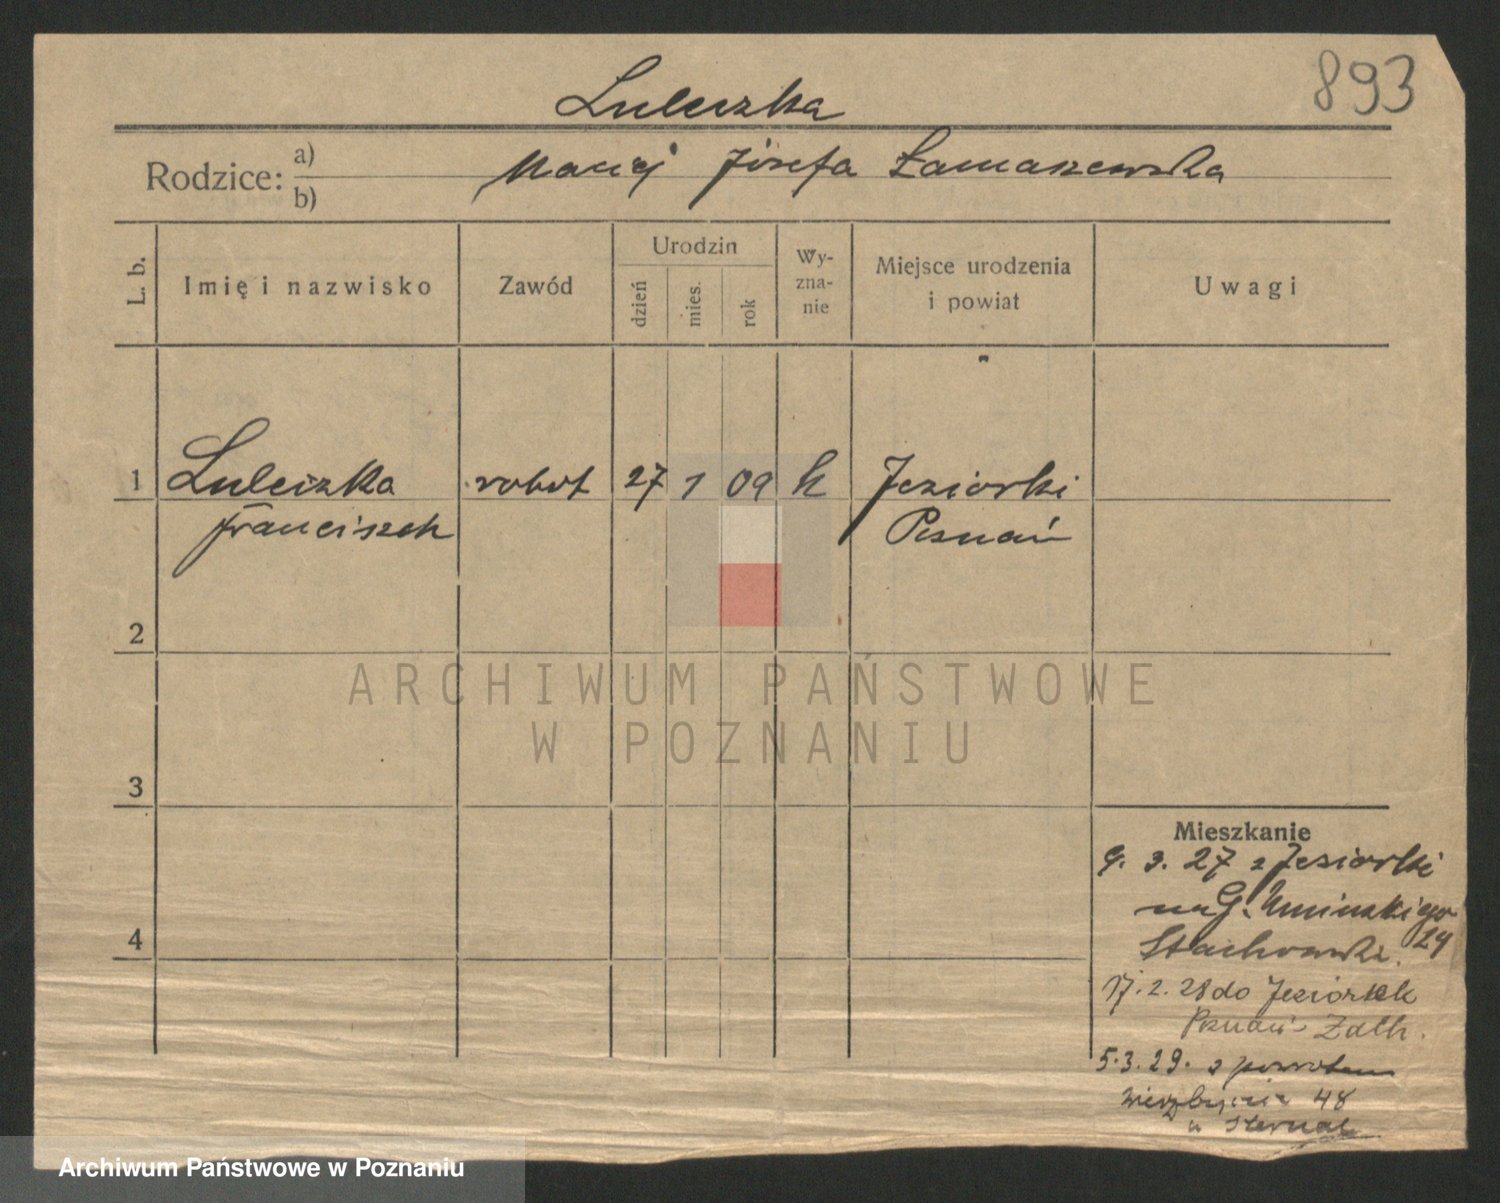 893
Luleczka
Rodzice: a) b)
Maciej Józefa Łamaszewska
L. b.
Imię i nazwisko
Zawód
Urodzin
dzień
mies.
rok
Wy-
zna-
nie
Miejsce urodzenia
i powiat
Uwagi
1 Luleczka robot 27 1 09 k Jeziorki
Franciszek Poznań
2
3
4
Mieszkanie
9. 3. 27 z Jeziorki
G. Umińskiego
24
17. 2. 28 do Jeziorek
Poznań Zach.
5. 3. 29. z powrotem
48
ARCHIWUM PAŃSTWOWE
W POZNANIU
Archiwum Państwowe w Poznaniu